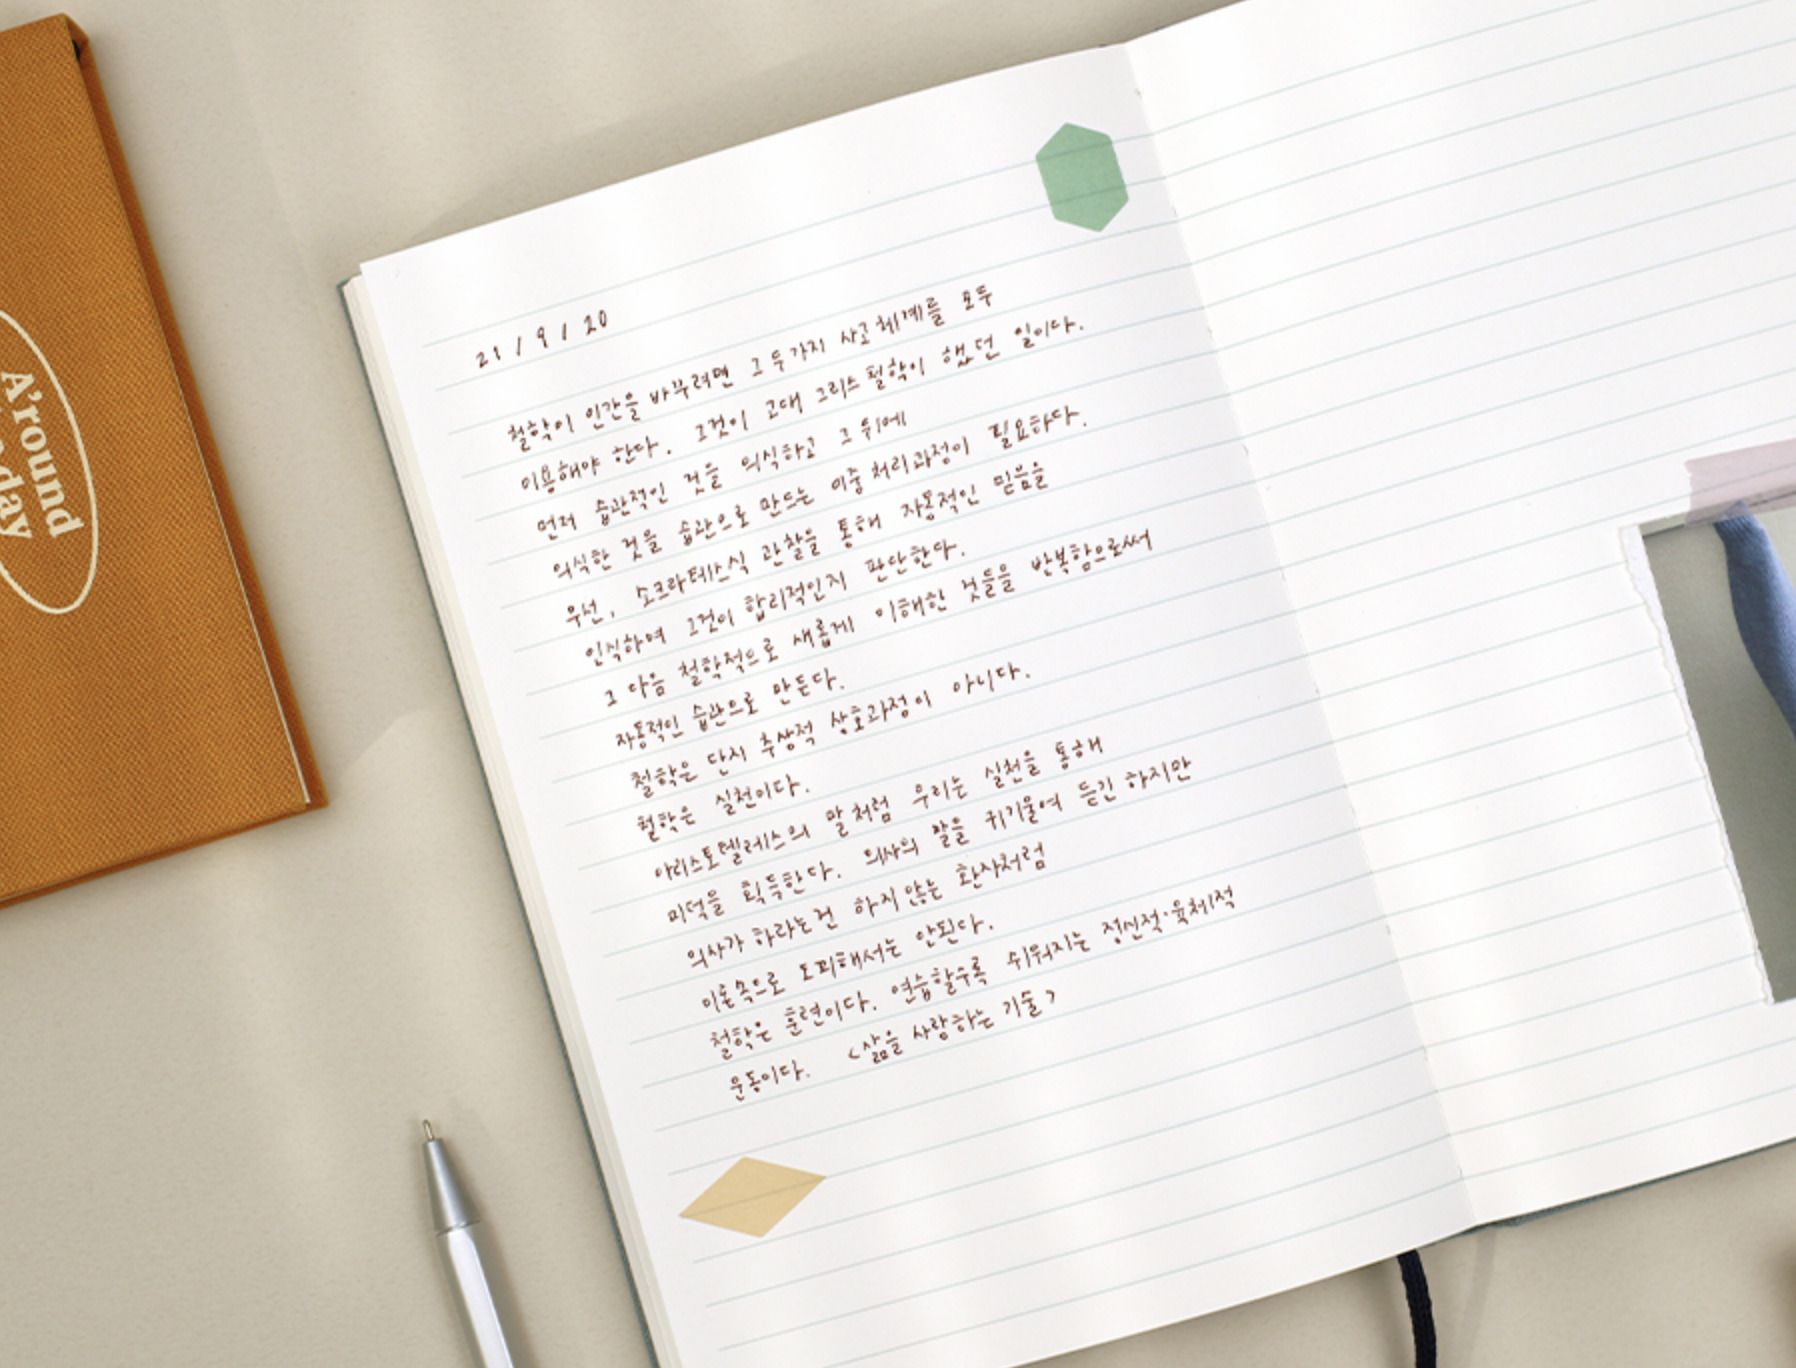 A'round
day
21 / 9 / 20
철학이 인간을 바꾸려면 그 두가지 사고체계를 모두
이용해야 한다. 그것이 고대 그리스 철학이 했던 일이다.
먼저 습관적인 것을 의식하고 그 뒤에
의식한 것을 습관으로 만드는 이중처리과정이 필요하다.
우선, 소크라테스식 관찰을 통해 자동적인 믿음을
인식하여 그것이 합리적인지 판단한다.
그 다음 철학적으로 새롭게 이해한 것들을 반복함으로써
자동적인 습관으로 만든다.
철학은 단지 추상적 상호과정이 아니다.
철학은 실천이다.
아리스토텔레스의 말처럼 우리는 실천을 통해
미덕을 획득한다. 의사의 말을 귀기울여 듣긴 하지만
의사가 하라는건 하지않는 환자처럼
이론속으로 도피해서는 안된다.
철학은 훈련이다. 연습할수록 쉬워지는 정신적·육체적
운동이다. <삶을 사랑하는 기술>